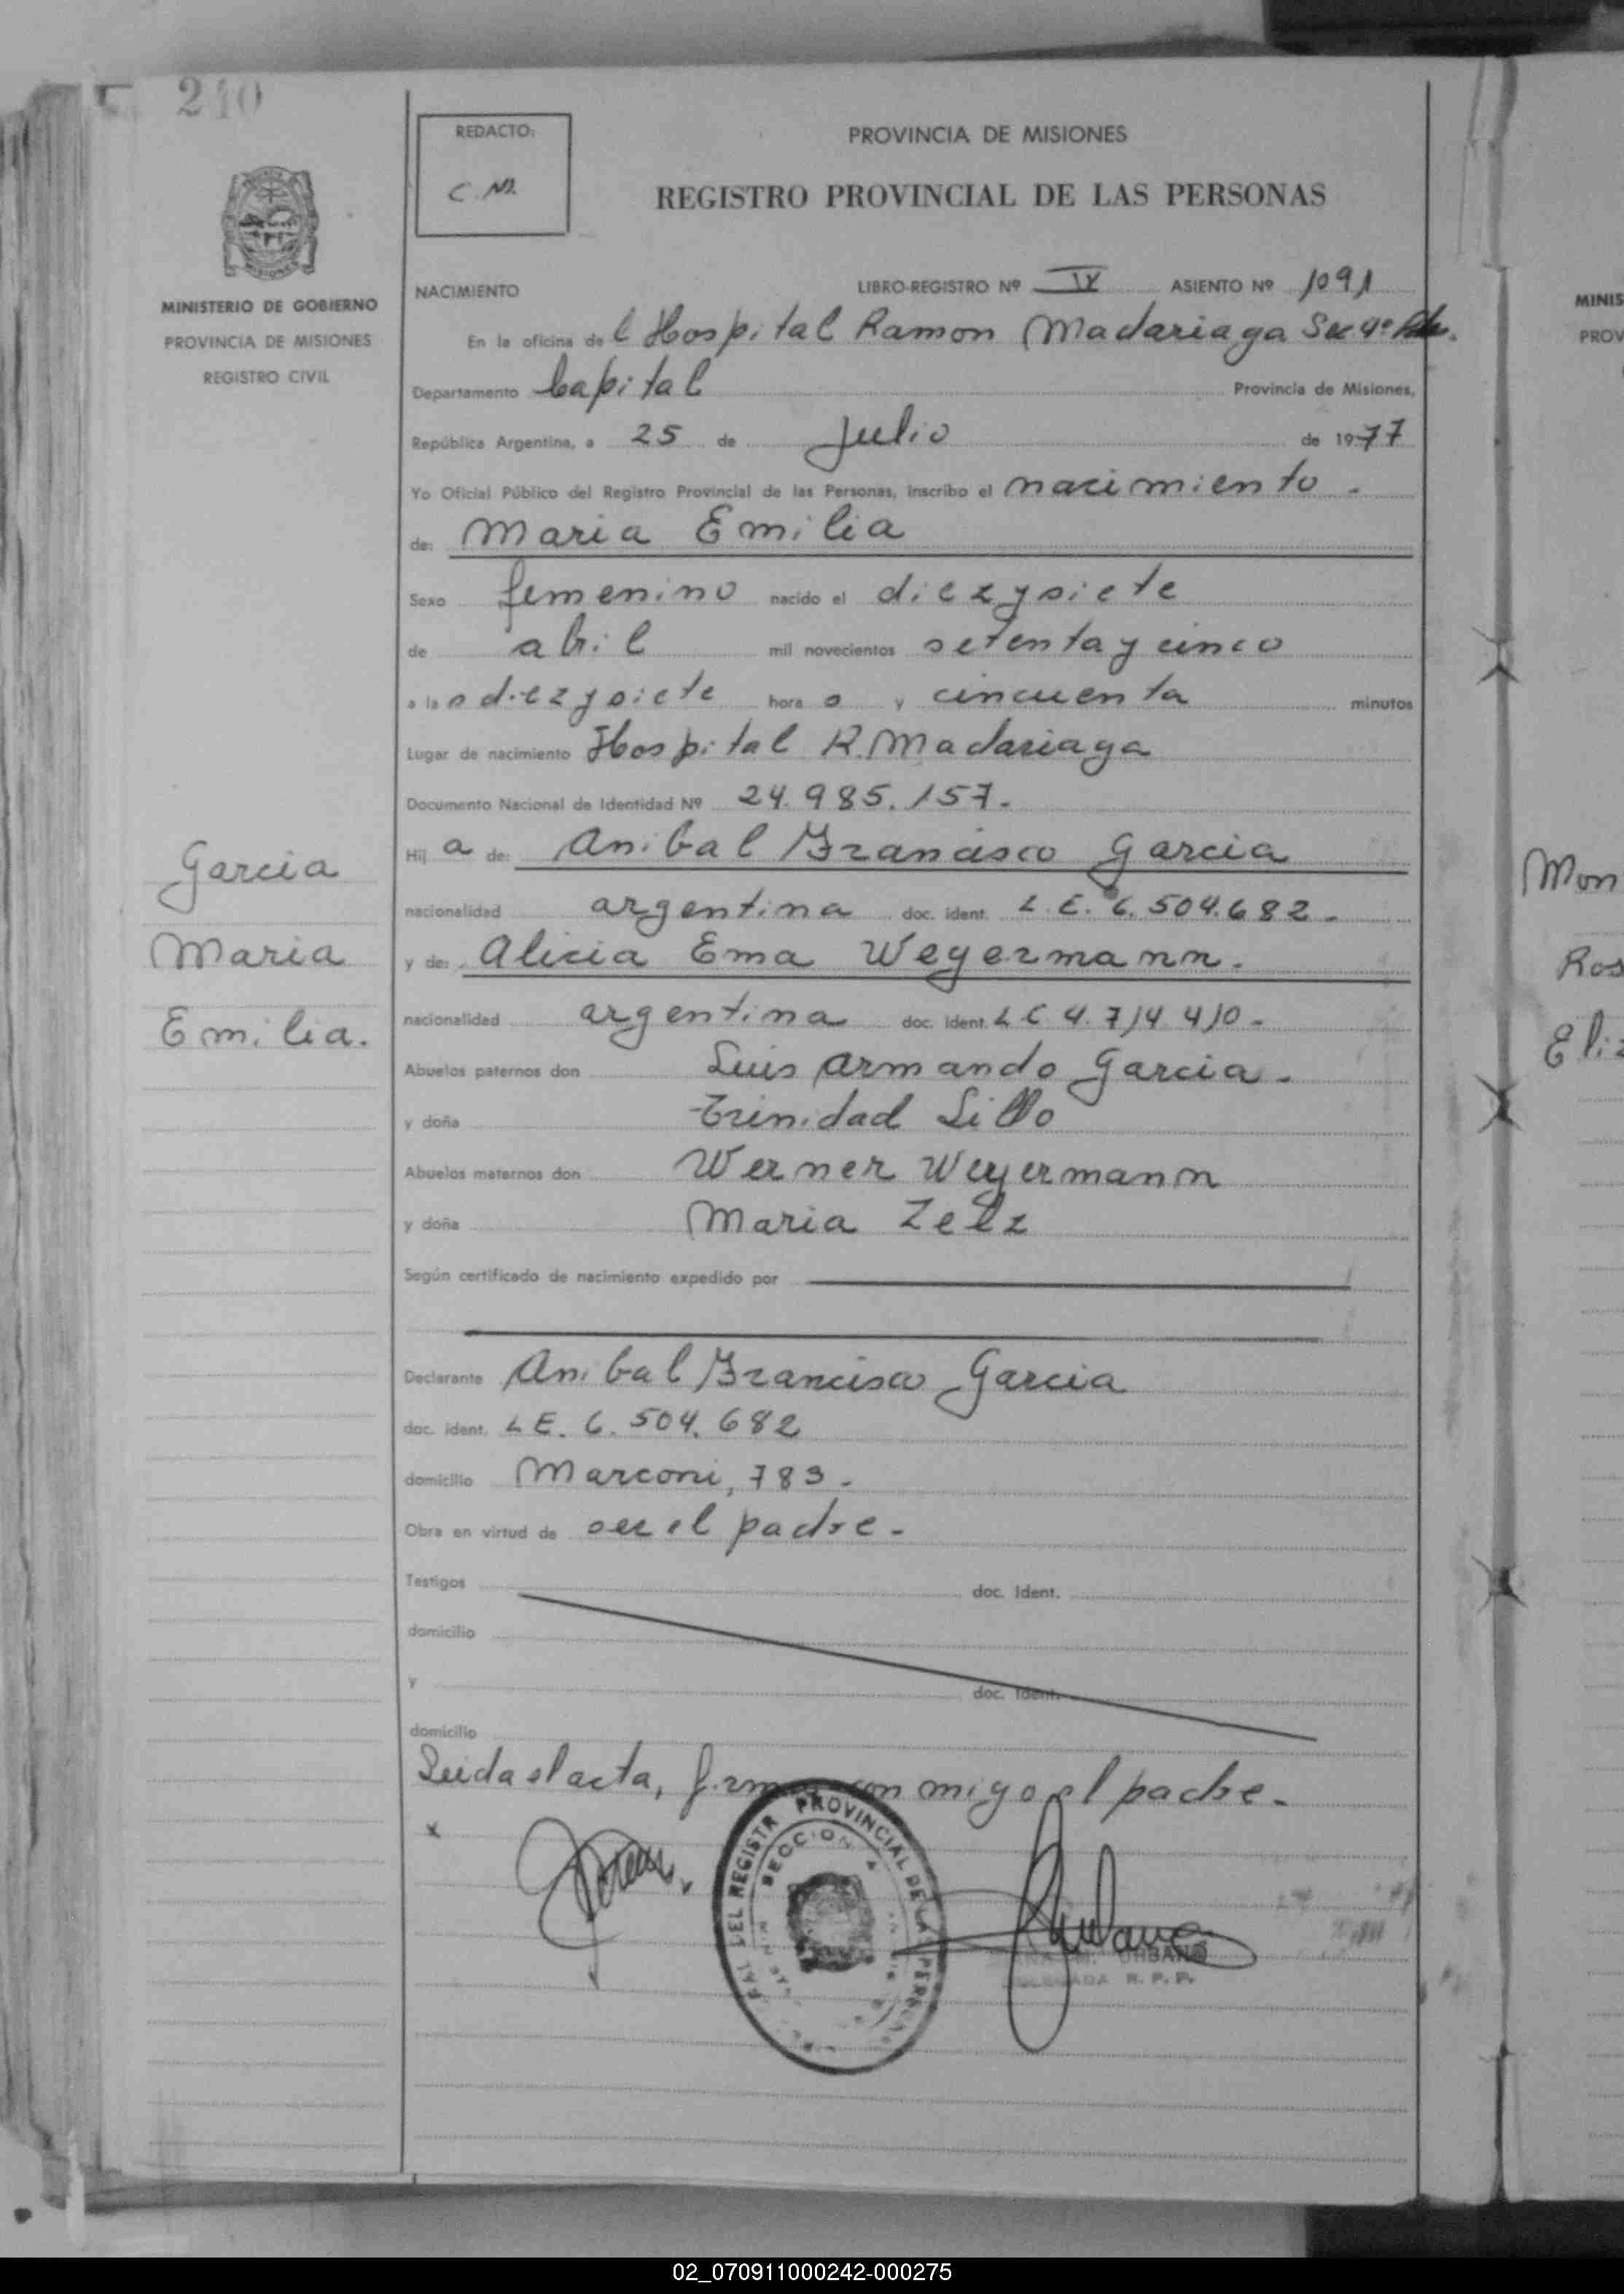 210
REDACTO:
C. M.
PROVINCIA DE MISIONES
REGISTRO PROVINCIAL DE LAS PERSONAS
MISIONES
MINISTERIO DE GOBIERNO
PROVINCIA DE MISIONES
REGISTRO CIVIL
NACIMIENTO LIBRO-REGISTRO Nº IV ASIENTO Nº 1091
En la oficina del Hospital Ramon Madariaga Sec 4ª
Departamento Capital Provincia de Misiones,
República Argentina, a 25 de Julio de 1977
Yo Oficial Público del Registro Provincial de las Personas, inscribo el nacimiento.
de: Maria Emilia
Sexo femenino nacido el diezysiete
de abril mil novecientos setenta y cinco
a las diezysiete horas y cincuenta minutos
Lugar de nacimiento Hospital R. Madariaga
Documento Nacional de Identidad Nº 24.985.157.
Hija de: Anibal Francisco Garcia
nacionalidad argentina doc. ident. L.E. 6.504.682.
y de: Alicia Ema Weyermann.
nacionalidad argentina doc. ident. L C 4.714.410.
Abuelos paternos don Luis Armando Garcia.
y doña Trinidad Lillo
Abuelos maternos don Werner Weyermann
y doña Maria Zelz
Según certificado de nacimiento expedido por
Declarante Anibal Francisco Garcia
doc. ident. L E. 6.504.682
domicilio Marconi, 783.
Obra en virtud de ser el padre.
Testigos doc. Ident.
domicilio
y doc. Ident.
domicilio
Leida el acta, firma con migo el padre.
x
Garcia
Maria
Emilia.
DEL REGISTR PROVINCIAL DE LAS PERSONAS
SECCION 4
M. URBANO
DELEGADA R. P. P.
MINIS
PROV
Mon
Ros
Eliz
02_070911000242-000275